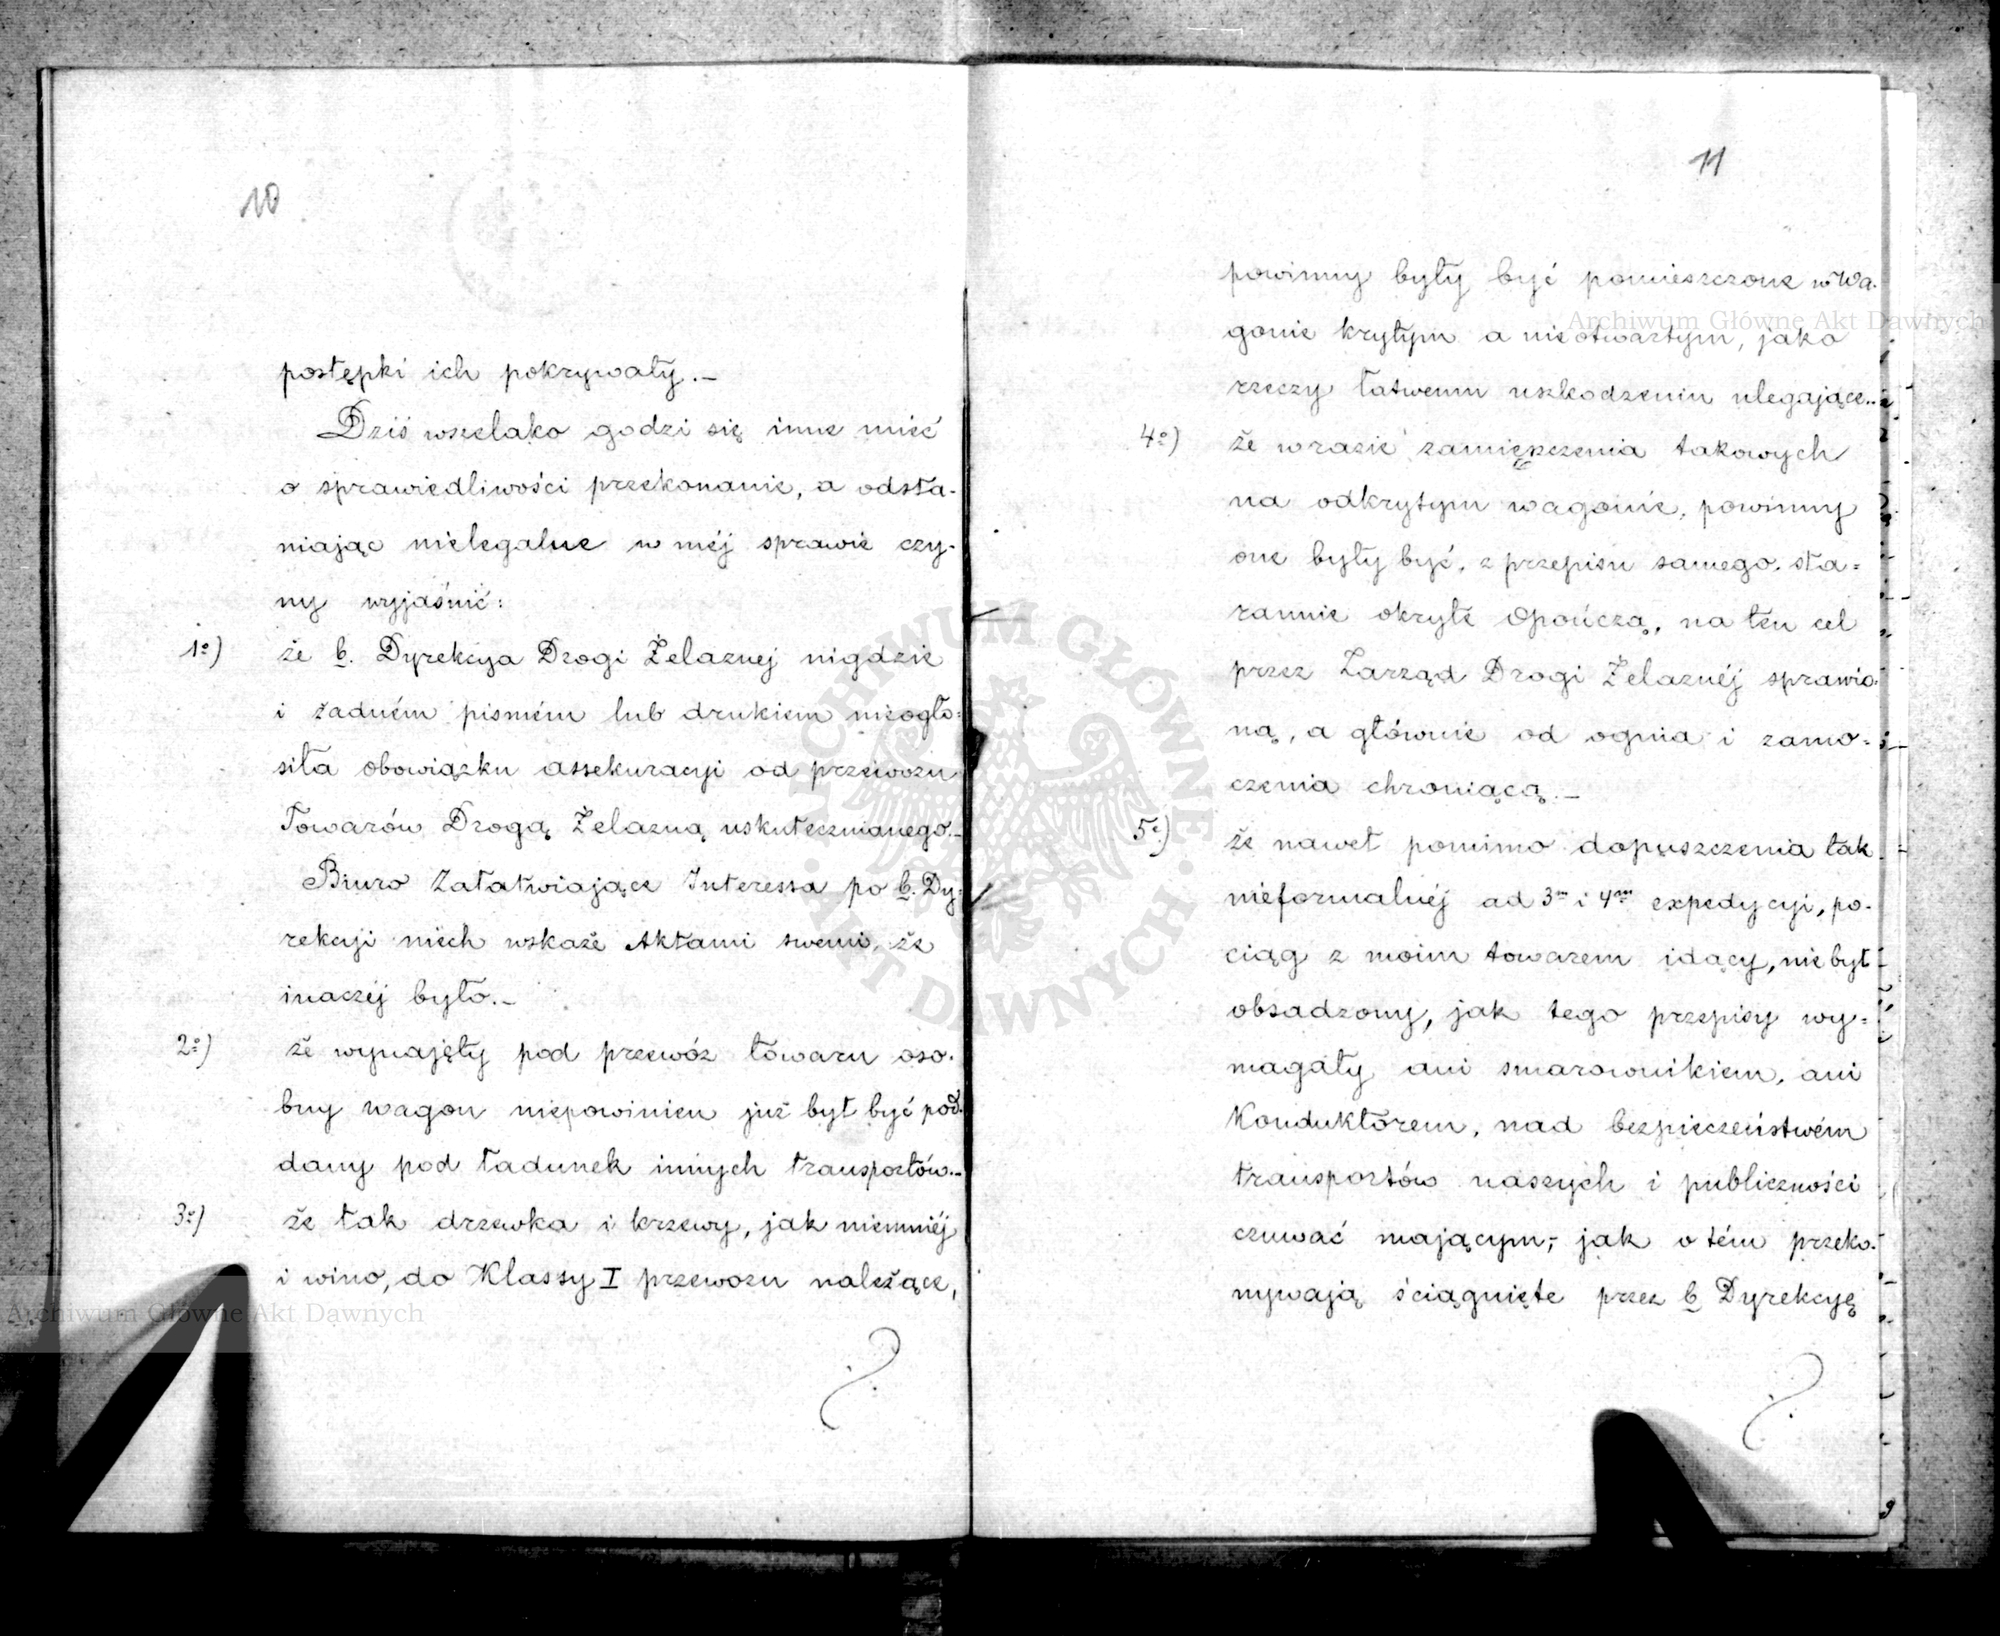 10
postępki ich pokrywały.—
Dziś wszelako godzi się inne mieć
o sprawiedliwości przekonanie, a odsła-
niając nielegalne w méj sprawie czy-
ny wyjaśnić:
1º) że b. Dyrekcya Drogi Żelaznej nigdzie
i żadném pismém lub drukiem nieogło=
siła obowiązku assekuracyi od przewozu
Towarów Drogą Żelazną uskutecznianego.—
Biuro Załatwiające Interessa po b. Dy=
rekcyi niech wskaże Aktami swemi, że
inaczéj było.—
2º) że wynajęty pod przewóz towaru oso-
bny wagon niepowinien już był być pod-
dany pod ładunek innych transportów.—
3º) że tak drzewka i krzewy, jak niemniéj
i wino, do Klassy I przewozu należące,
11
powinny były być pomieszczone w Wa-
gonie krytym a nie otwartym, jako
rzeczy łatwemu uszkodzeniu ulegające.
4º) że w razie zamięszczenia takowych
na odkrytym wagonie, powinny
one były być, z przepisu samego, sta=
rannie okryte Opończą, na ten cel
przez Zarząd Drogi Żelaznéj sprawio-
ną, a głównie od ognia i zamo=
czenia chroniącą.—
5º) że nawet pomimo dopuszczenia tak
nieformalnéj ad 3m i 4m expedycyi, po-
ciąg z moim towarem idący, nie był
obsadzony, jak tego przepisy wy=
magały ani smarownikiem, ani
Konduktorem, nad bezpieczeństwém
transportów naszych i publiczności
czuwać mającym; jak o tém przeko-
nywają ściągnięte przez b Dyrekcyę
Archiwum Główne Akt Dawnych
Archiwum Główne Akt Dawnych
ARCHIWUM GŁÓWNE AKT DAWNYCH